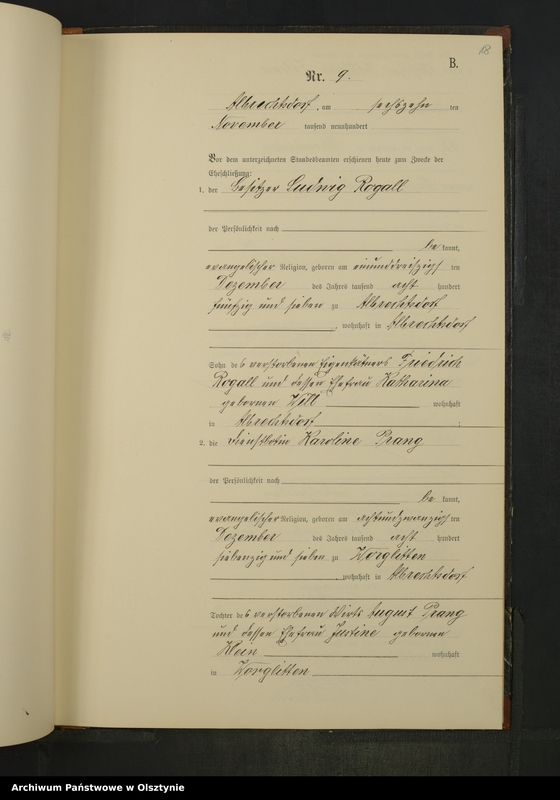 18
B.
Nr. 9.
Albrechtsdorf, am sechszehn ten
November tausend neunhundert
Vor dem unterzeichneten Standesbeamten erschienen heute zum Zwecke der
Eheschließung:
1. der Besitzer Ludwig Rogall
der Persönlichkeit nach
be kannt,
evangelischer Religion, geboren am einunddreißigs ten
Dezember des Jahres tausend acht hundert
fünfzig und sieben zu Albrechtsdorf
, wohnhaft in Albrechtsdorf
Sohn des verstorbenen Eigenkätners Friedrich
Rogall und dessen Ehefrau Katharina
geborenen Will wohnhaft
in Albrechtsdorf
2. die Dienstbotin Karoline Prang
der Persönlichkeit nach
be kannt,
evangelischer Religion, geboren am achtundzwanzigs ten
Dezember des Jahres tausend acht hundert
siebenzig und sieben zu Worglitten
, wohnhaft in Albrechtsdorf
Tochter des verstorbenen Wirts August Prang
und dessen Ehefrau Justine geborenen
Klein wohnhaft
in Worglitten
Archiwum Państwowe w Olsztynie